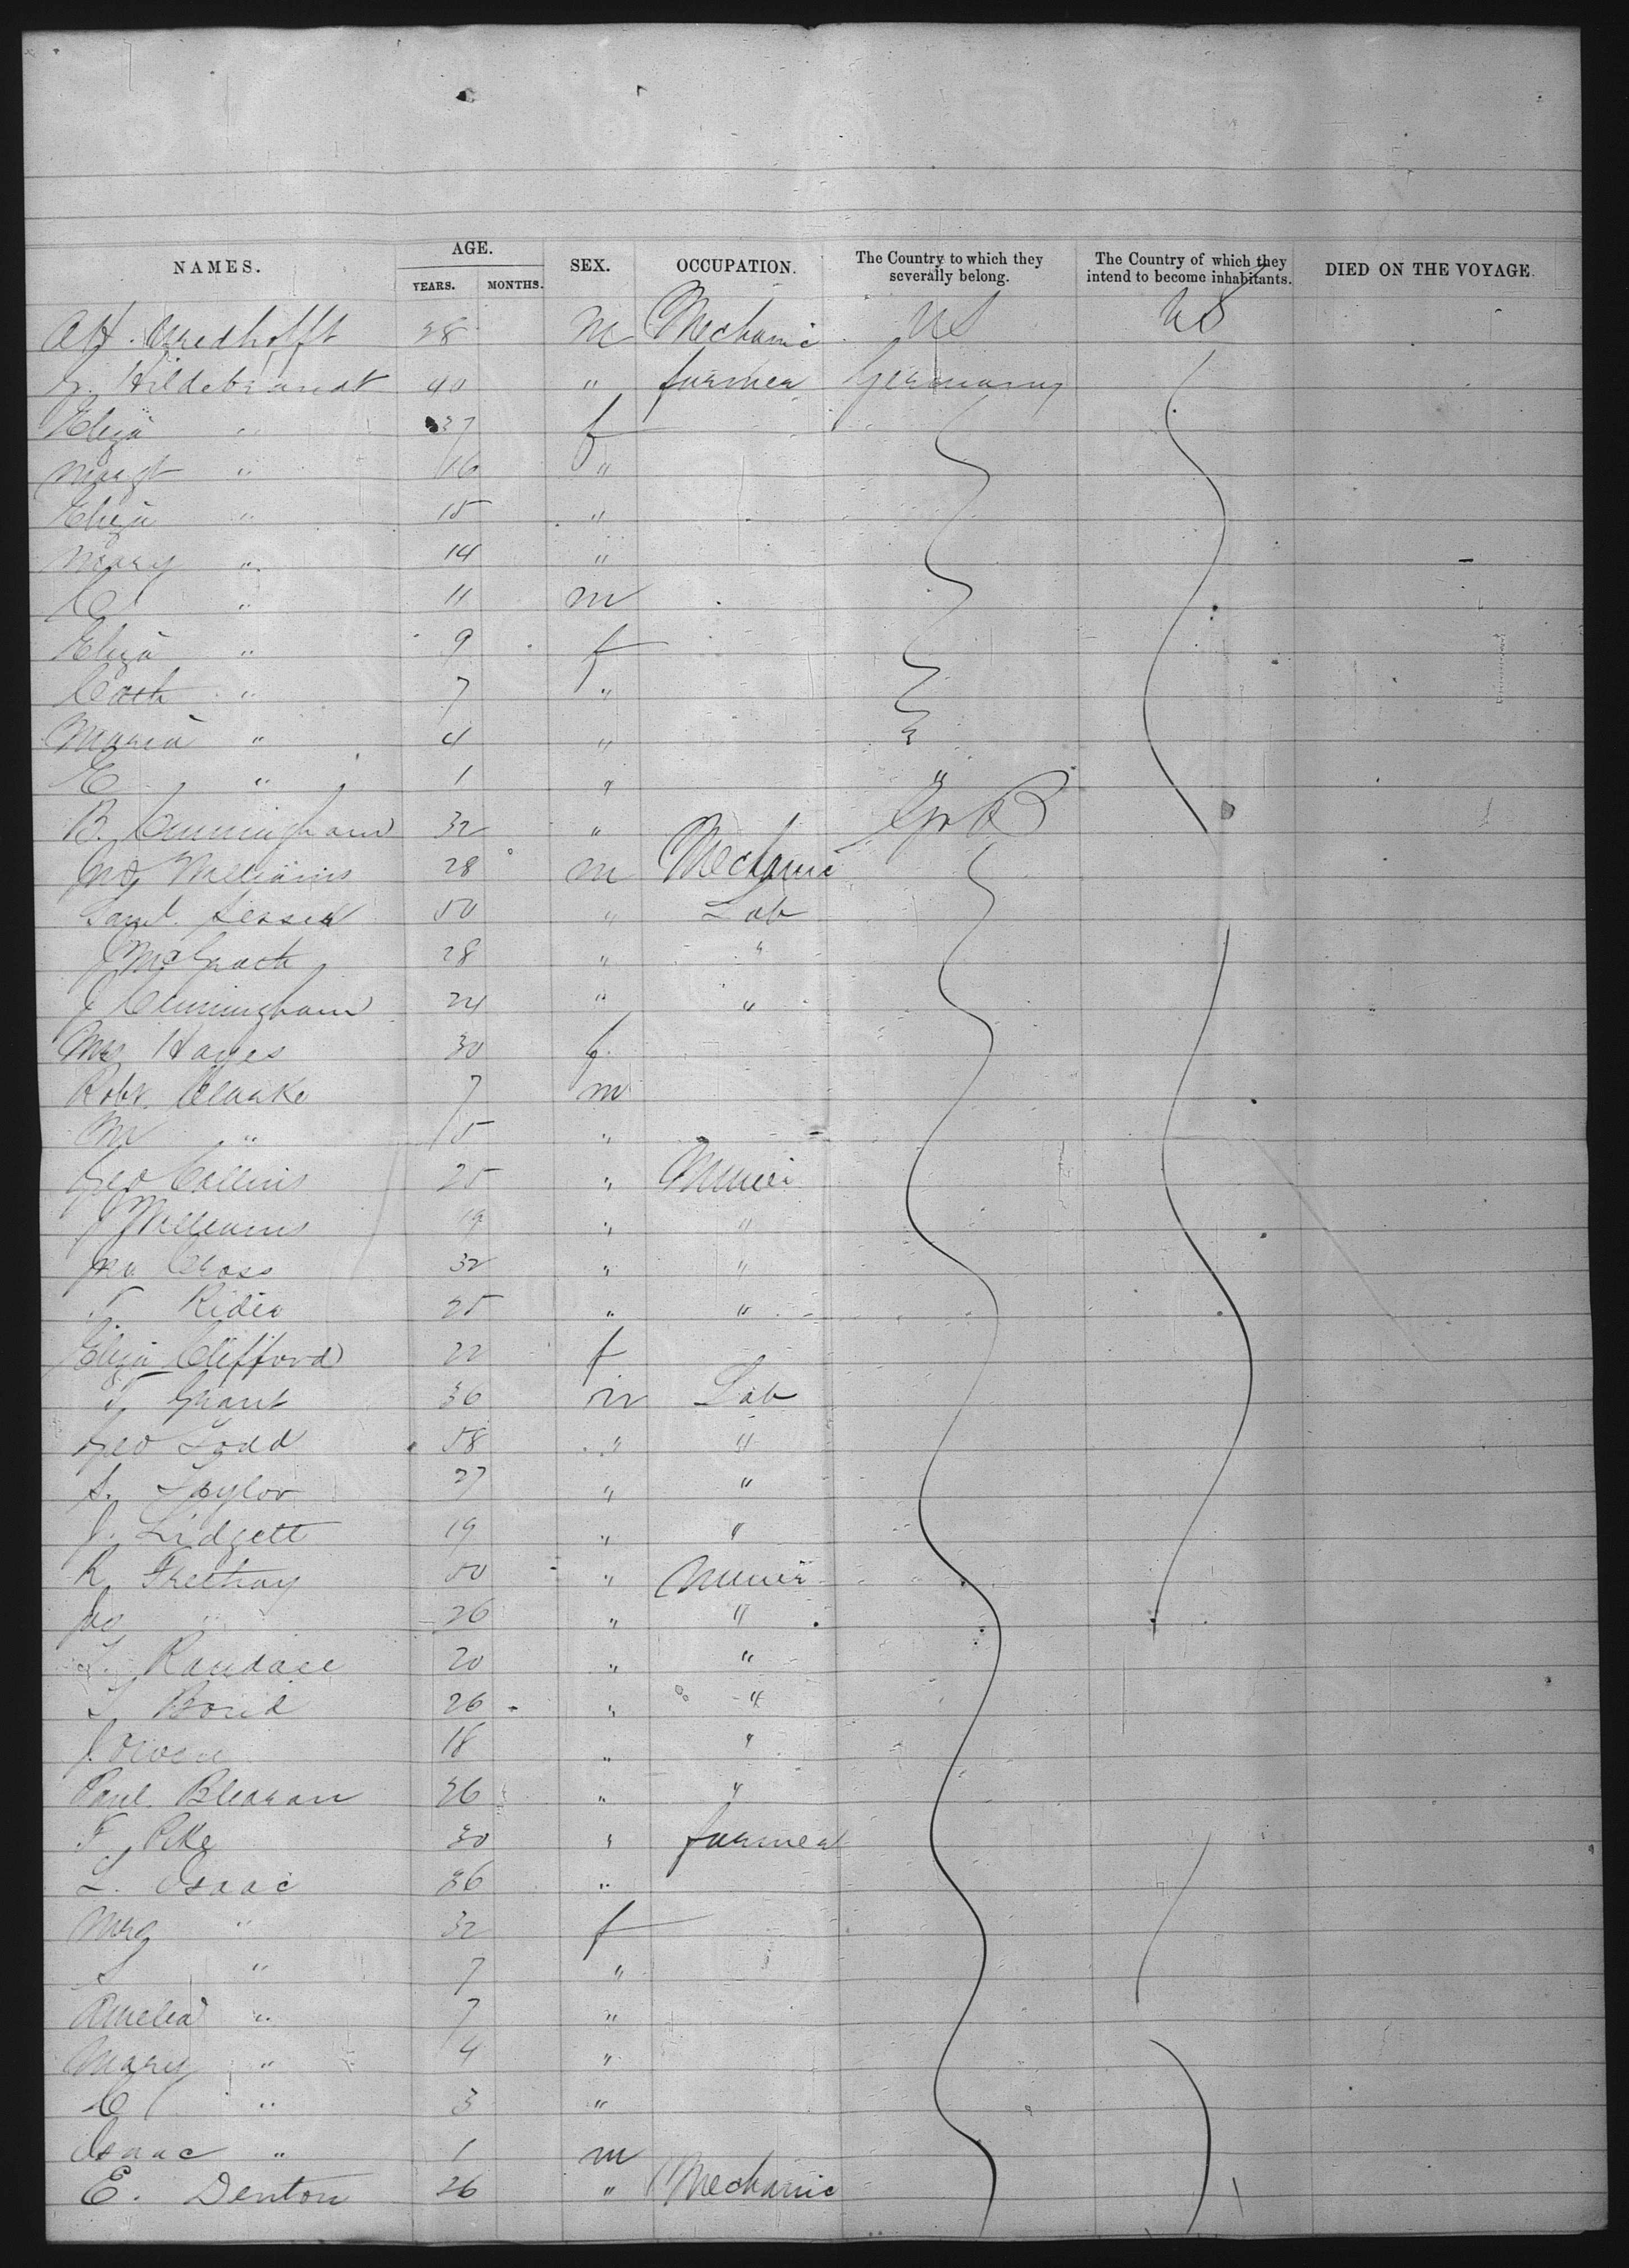 NAMES. AGE. SEX. OCCUPATION. The Country to which they severally belong. The Country of which they intend to become inhabitants. DIED ON THE VOYAGE.
YEARS. MONTHS.
AH. 28 m Mechanic US US
G. Hildebrandt 40 " farmer Germany
Eliza " 37 f
Margt " 16 "
Eliza " 15 "
Mary " 14 "
C " 11 m
Eliza " 9 f
Cath " 7 "
Maria " 4 "
E " 1 " "
B. Cunningham 32 " Gr B
Jno Williams 28 m Mechanic
Saml. 50 " Lab
J McGrath 28 " "
J Cunningham 24 " "
Mrs Hayes 30 f
Robt. Clarke 7 m
Mr " 5 "
Geo Collins 25 " Miner
J Williams 19 " "
Jno Cross 32 " "
T. Rider 25 " "
Eliza Clifford 22 f
T. Grant 36 m Lab
Geo Todd 58 " "
S. Taylor 27 " "
J. Lidgett 19 " "
R. 50 " Miner
Jas " 26 " "
Randace 20 " "
26 " "
J. Owen 18 " "
26 " "
F Pike 30 " farmer
L. Isaac 36 "
Mrs " 32 f
S " 7 "
Amelia " 7 "
Mary " 4 "
C " 3 "
Isaac " 1 m
E. Denton 26 " Mechanic